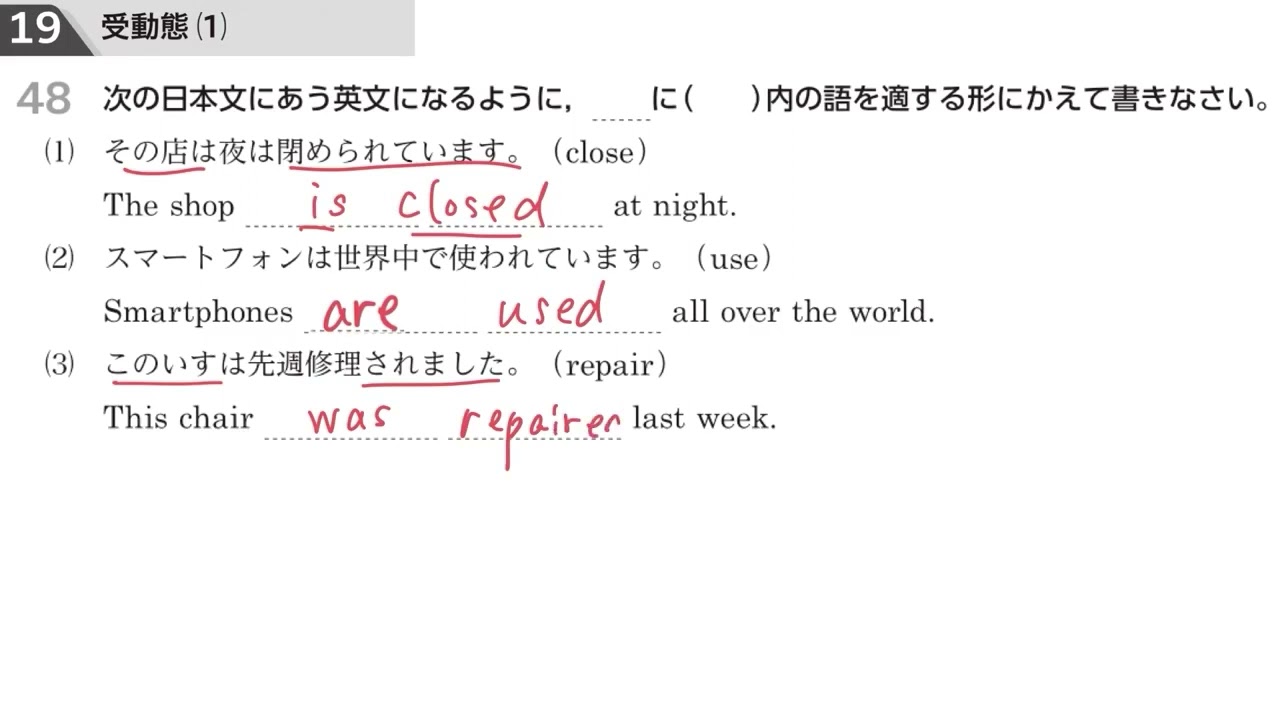 19 受動態(1)
48 次の日本文にあう英文になるように, に( )内の語を適する形にかえて書きなさい。
(1) その店は夜は閉められています。(close)
The shop is closed at night.
(2) スマートフォンは世界中で使われています。(use)
Smartphones are used all over the world.
(3) このいすは先週修理されました。(repair)
This chair was repairer last week.